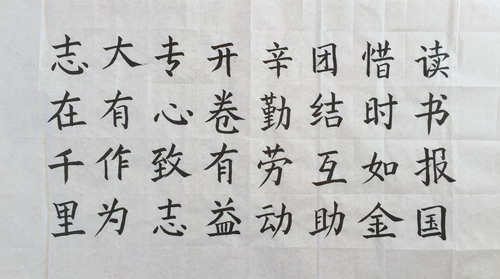 读书报国
惜时如金
团结互助
辛勤劳动
开卷有益
专心致志
大有作为
志在千里